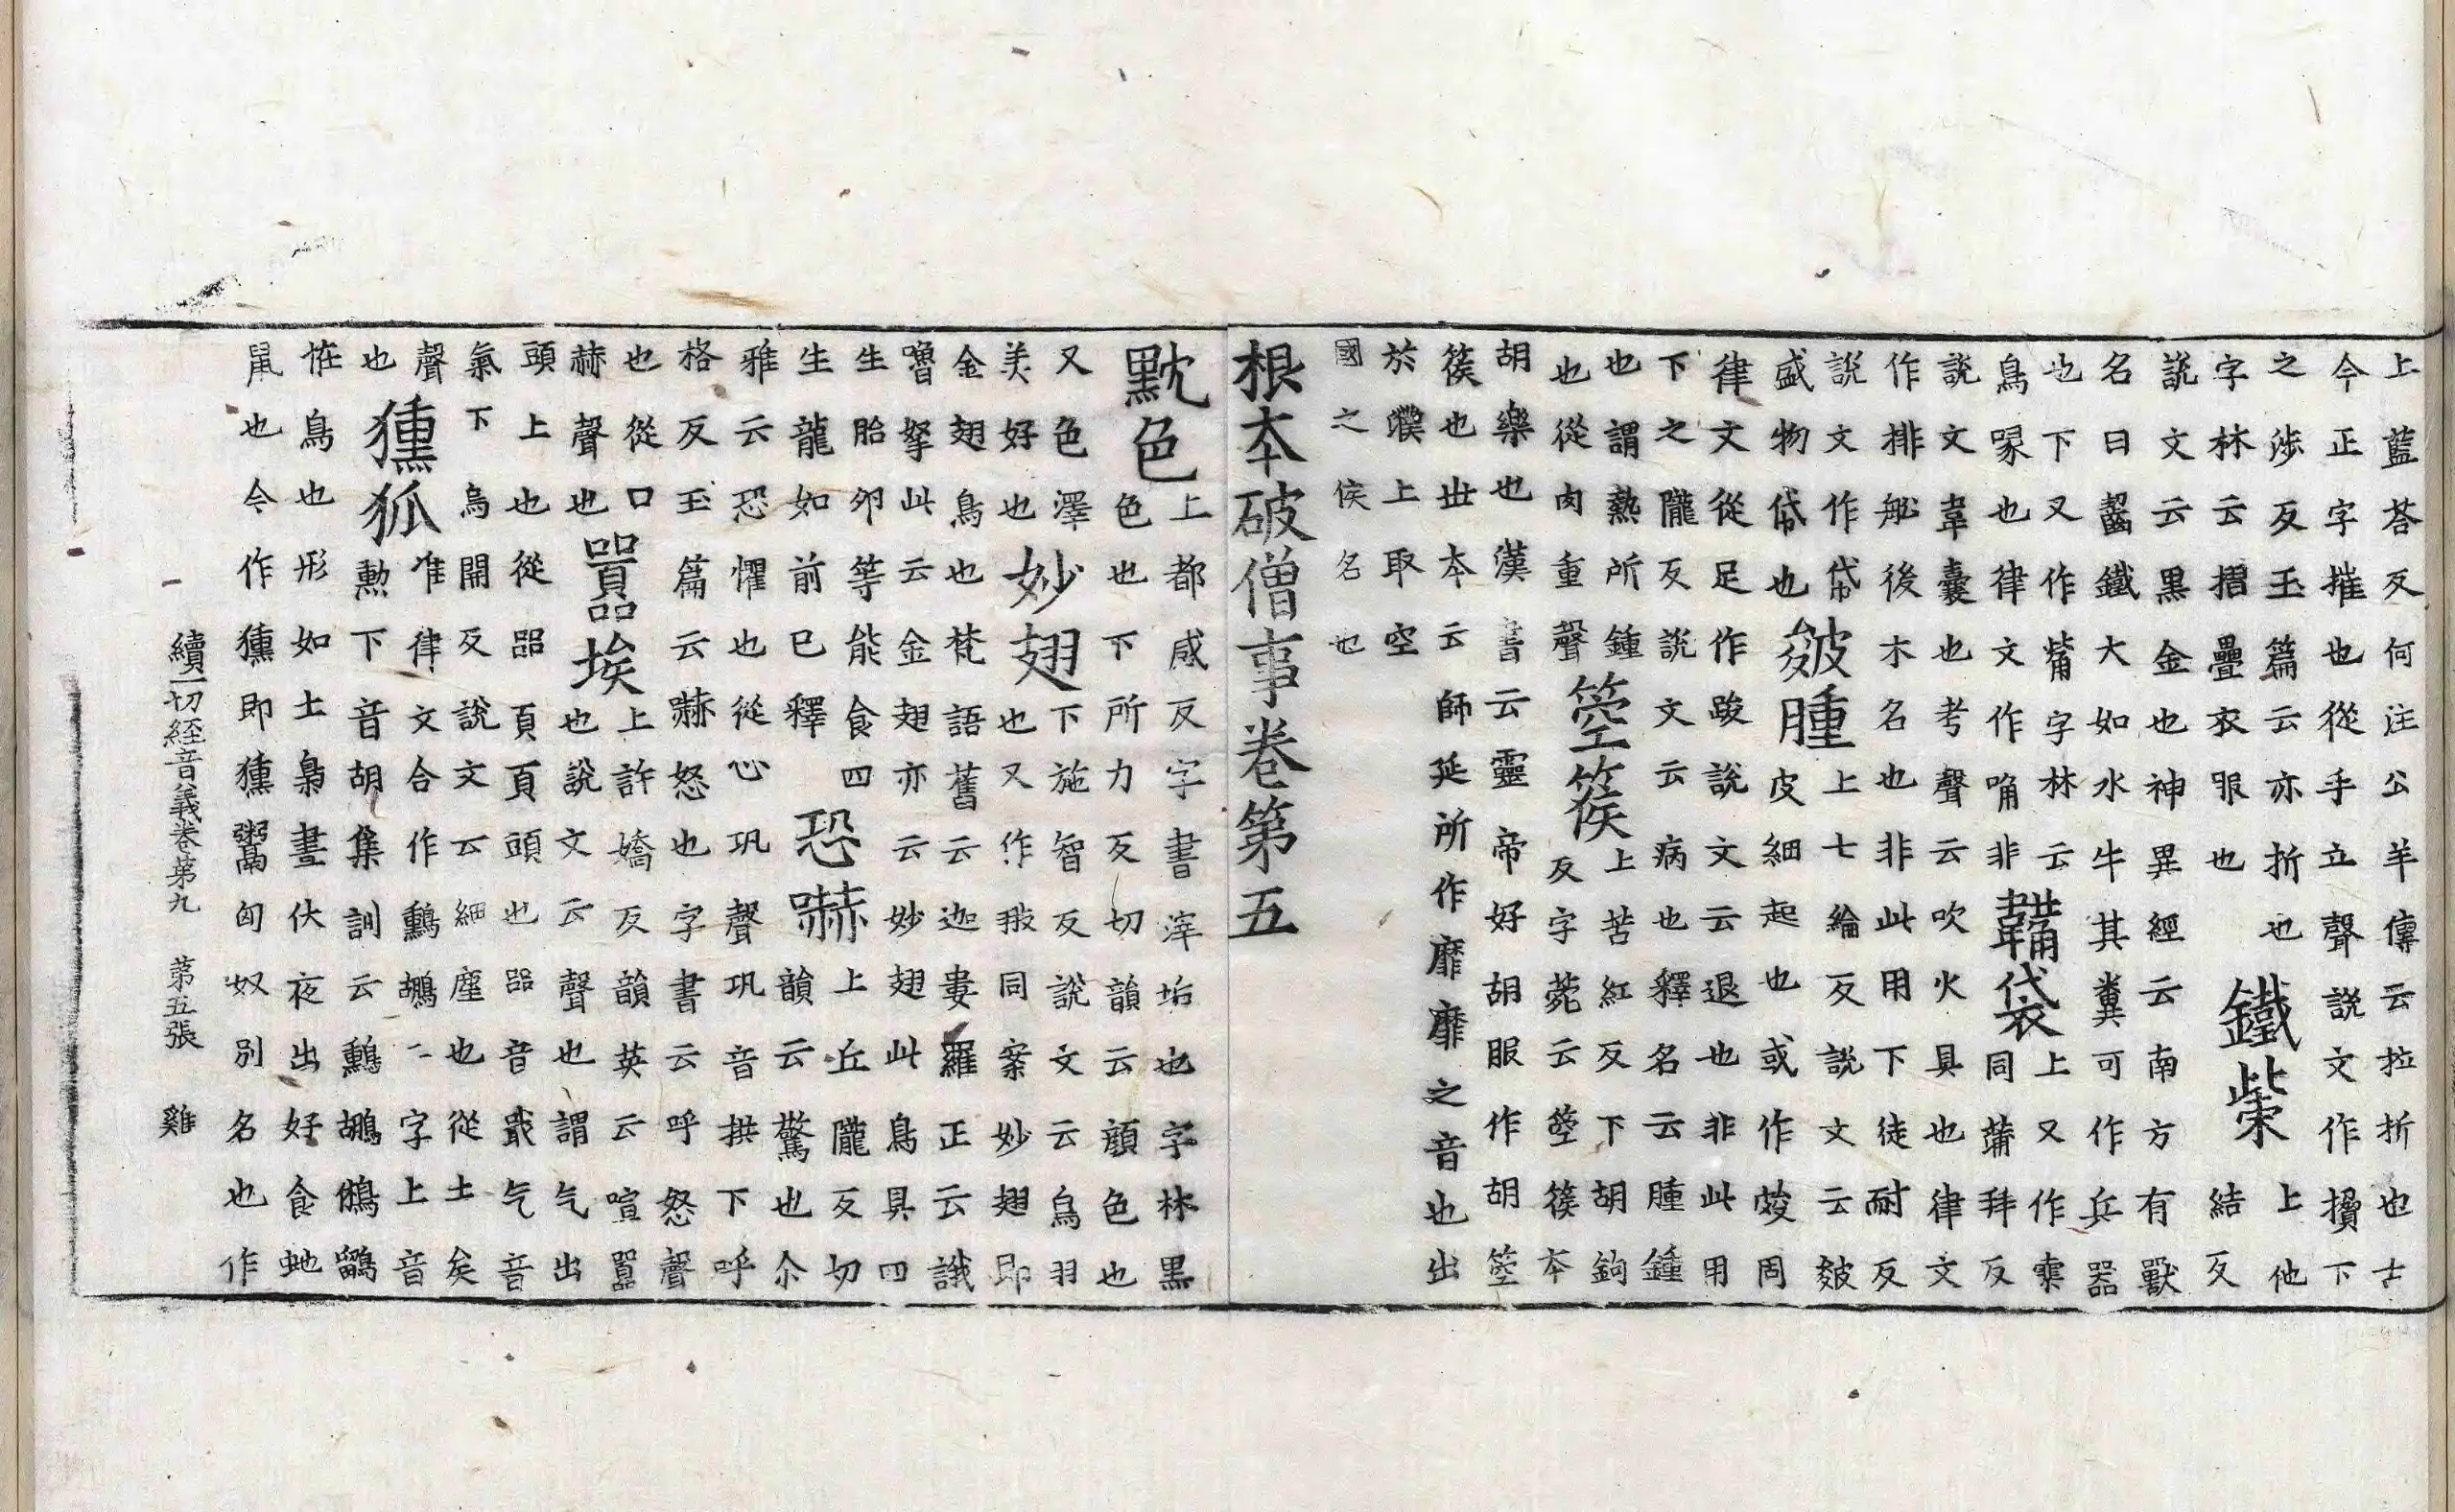 上藍荅反何注公羊傳云拉折也士
今正字摧也從手立聲說文作摺下
之涉反玉篇云亦折也
字林云摺疊衣服也
鐵㭰
上他
結反
說文云黑金也神異經云南方有獸
名曰齧鐵大如水牛其糞可作兵器
也下又作觜字林云
鳥喙也律文作㗁非
鞴袋
上又作橐
同蒲拜反
說文韋囊也考聲云吹火具也律文
作排舩後木名也非此用下徒耐反
說文作帒
盛物帒也
皴腫
上七綸反說文云皴
皮細起也或作㕙同
律文從足作踆說文云退也非此用
下之隴反說文云病也釋名云腫鍾
也謂熱所鍾
也從肉重聲
箜篌
上苦紅反下胡鉤
反字菀云箜篌本
胡樂也漢書云靈帝好胡服作胡箜
篌也世本云師延所作靡靡之音也出
於濮上取空
國之侯名也
根本破僧事卷第五
黕色
上都感反字書滓垢也字林黑
色也下所力反切韻云顏色也
又色澤
美好也
妙翅
下施智反說文云鳥羽
也又作䎐同案妙翅即
金翅鳥也梵語舊云迦婁羅正云誐
嚕拏此云金翅亦云妙翅此鳥具四
生胎夘等能食四
生龍如前已釋
恐嚇
上丘隴反切
韻云驚也尒
雅云恐懼也從心巩聲巩音拱下呼
格反玉篇云嚇怒也字書云呼怒聲
也從口
赫聲也
囂埃
上許嬌反韻英云喧囂
也說文云聲也謂气出
頭上也從㗊頁頁頭也㗊音戢气音
氣下烏開反說文云細塵也從土矣
聲
也
獯狐
准律文合作鸜鶘二字上音
勳下音胡集訓云鸜鶘鵂鶹
恠鳥也形如土梟晝伏夜出好食虵
鼠也今作獯即獯鬻匈奴別名也作
續一切經音義卷第九 第五張 雞